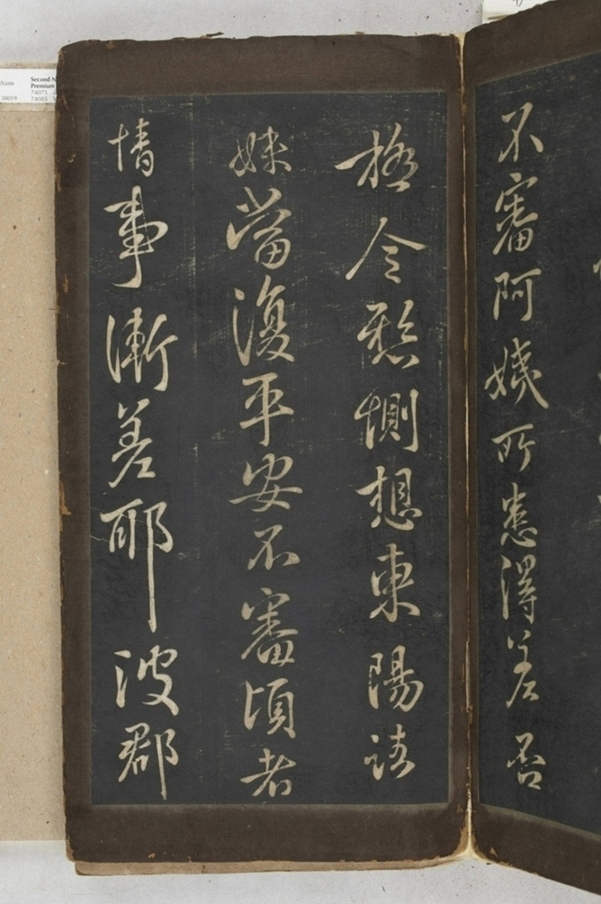 不審阿姨所患得差否
極令懸惻想東陽諸
妹當復平安不審頃者
情事漸差耶彼郡
Second N
Premium